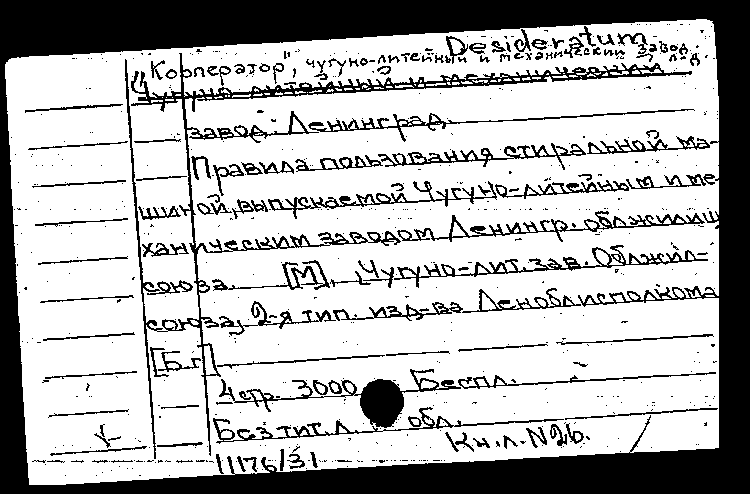 Desideratum
"Кооператор", чугуно-литейный и механический завод. Л-д.
Чугуно-литейный и механический
завод. Ленинград.
Правила пользования стиральной ма-
шиной, выпускаемой Чугуно-литейным и ме-
ханическим заводом Ленингр. облжилищ
союза. [М], Чугуно-лит. зав. Облжил-
союза, 2-я тип. изд-ва Леноблисполкома
[Б.г.]
4 стр. 3000 Беспл.
Без тит. л. обл.
11176/31 Кн. л. N26.